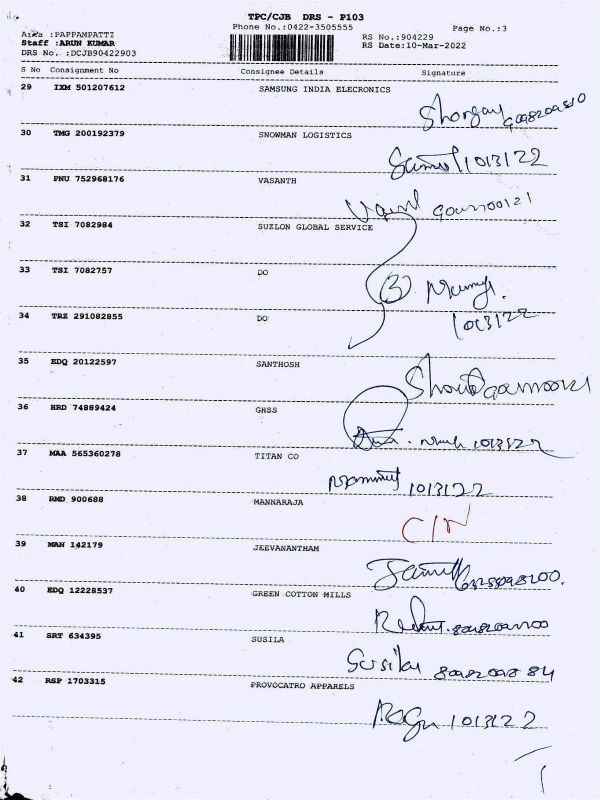 TPC/CJB DRS - P103
Phone No.:0422-3505555
Page No.:3
Area :PAPPAMPATTI
Staff :ARUN KUMAR
DRS No. :DCJB90422903
RS No.:904229
RS Date:10-Mar-2022
S No Consignment No Consignee Details Signature
29 IXM 501207612 SAMSUNG INDIA ELECRONICS
30 TMG 200192379 SNOWMAN LOGISTICS
1013122
31 PNU 752968176 VASANTH
32 TSI 7082984 SUZLON GLOBAL SERVICE
33 TSI 7082757 DO
3
34 TRZ 291082855 DO
1013122
35 EDQ 20122597 SANTHOSH
36 HRD 74889424 GHSS
1013122
37 MAA 565360278 TITAN CO
1013122
38 RMD 900688 MANNARAJA
C/N
39 MAN 142179 JEEVANANTHAM
40 EDQ 12228537 GREEN COTTON MILLS
41 SRT 634395 SUSILA
Susila
42 RSP 1703315 PROVOCATRO APPARELS
1013122